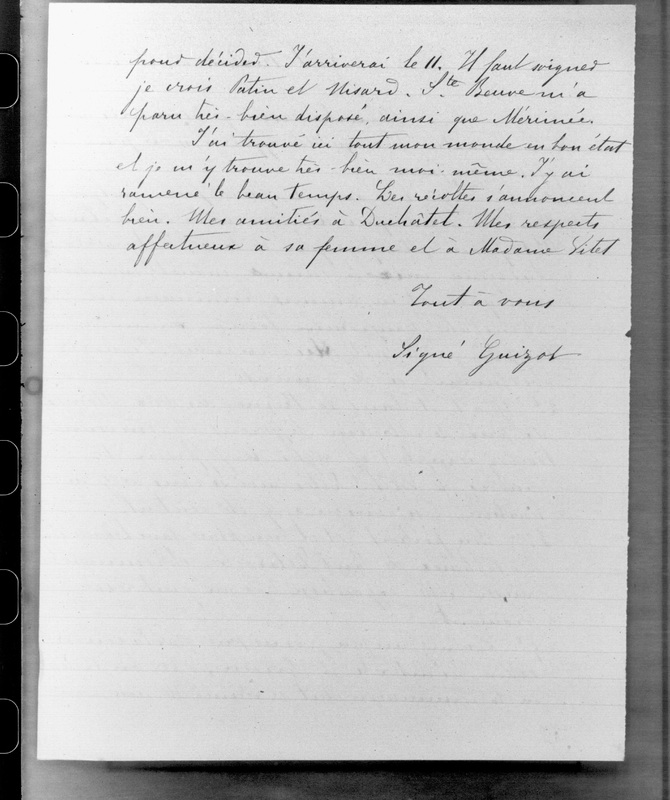 pond décidés. J'arriverai le 11. Il faut soigner
je crois Patin et Nisard. Ste Beuve m'a
paru très-bien disposé, ainsi que Mérimée.
J'ai trouvé ici tout mon monde en bon état
et je m'y trouve très-bien moi-même. J'y ai
ramené le beau temps. Les récoltes s'annoncent
bien. Mes amitiés à Duchâtel. Mes respects
affectueux à sa femme et à Madame Vitet
Tout à vous
Signé Guizot